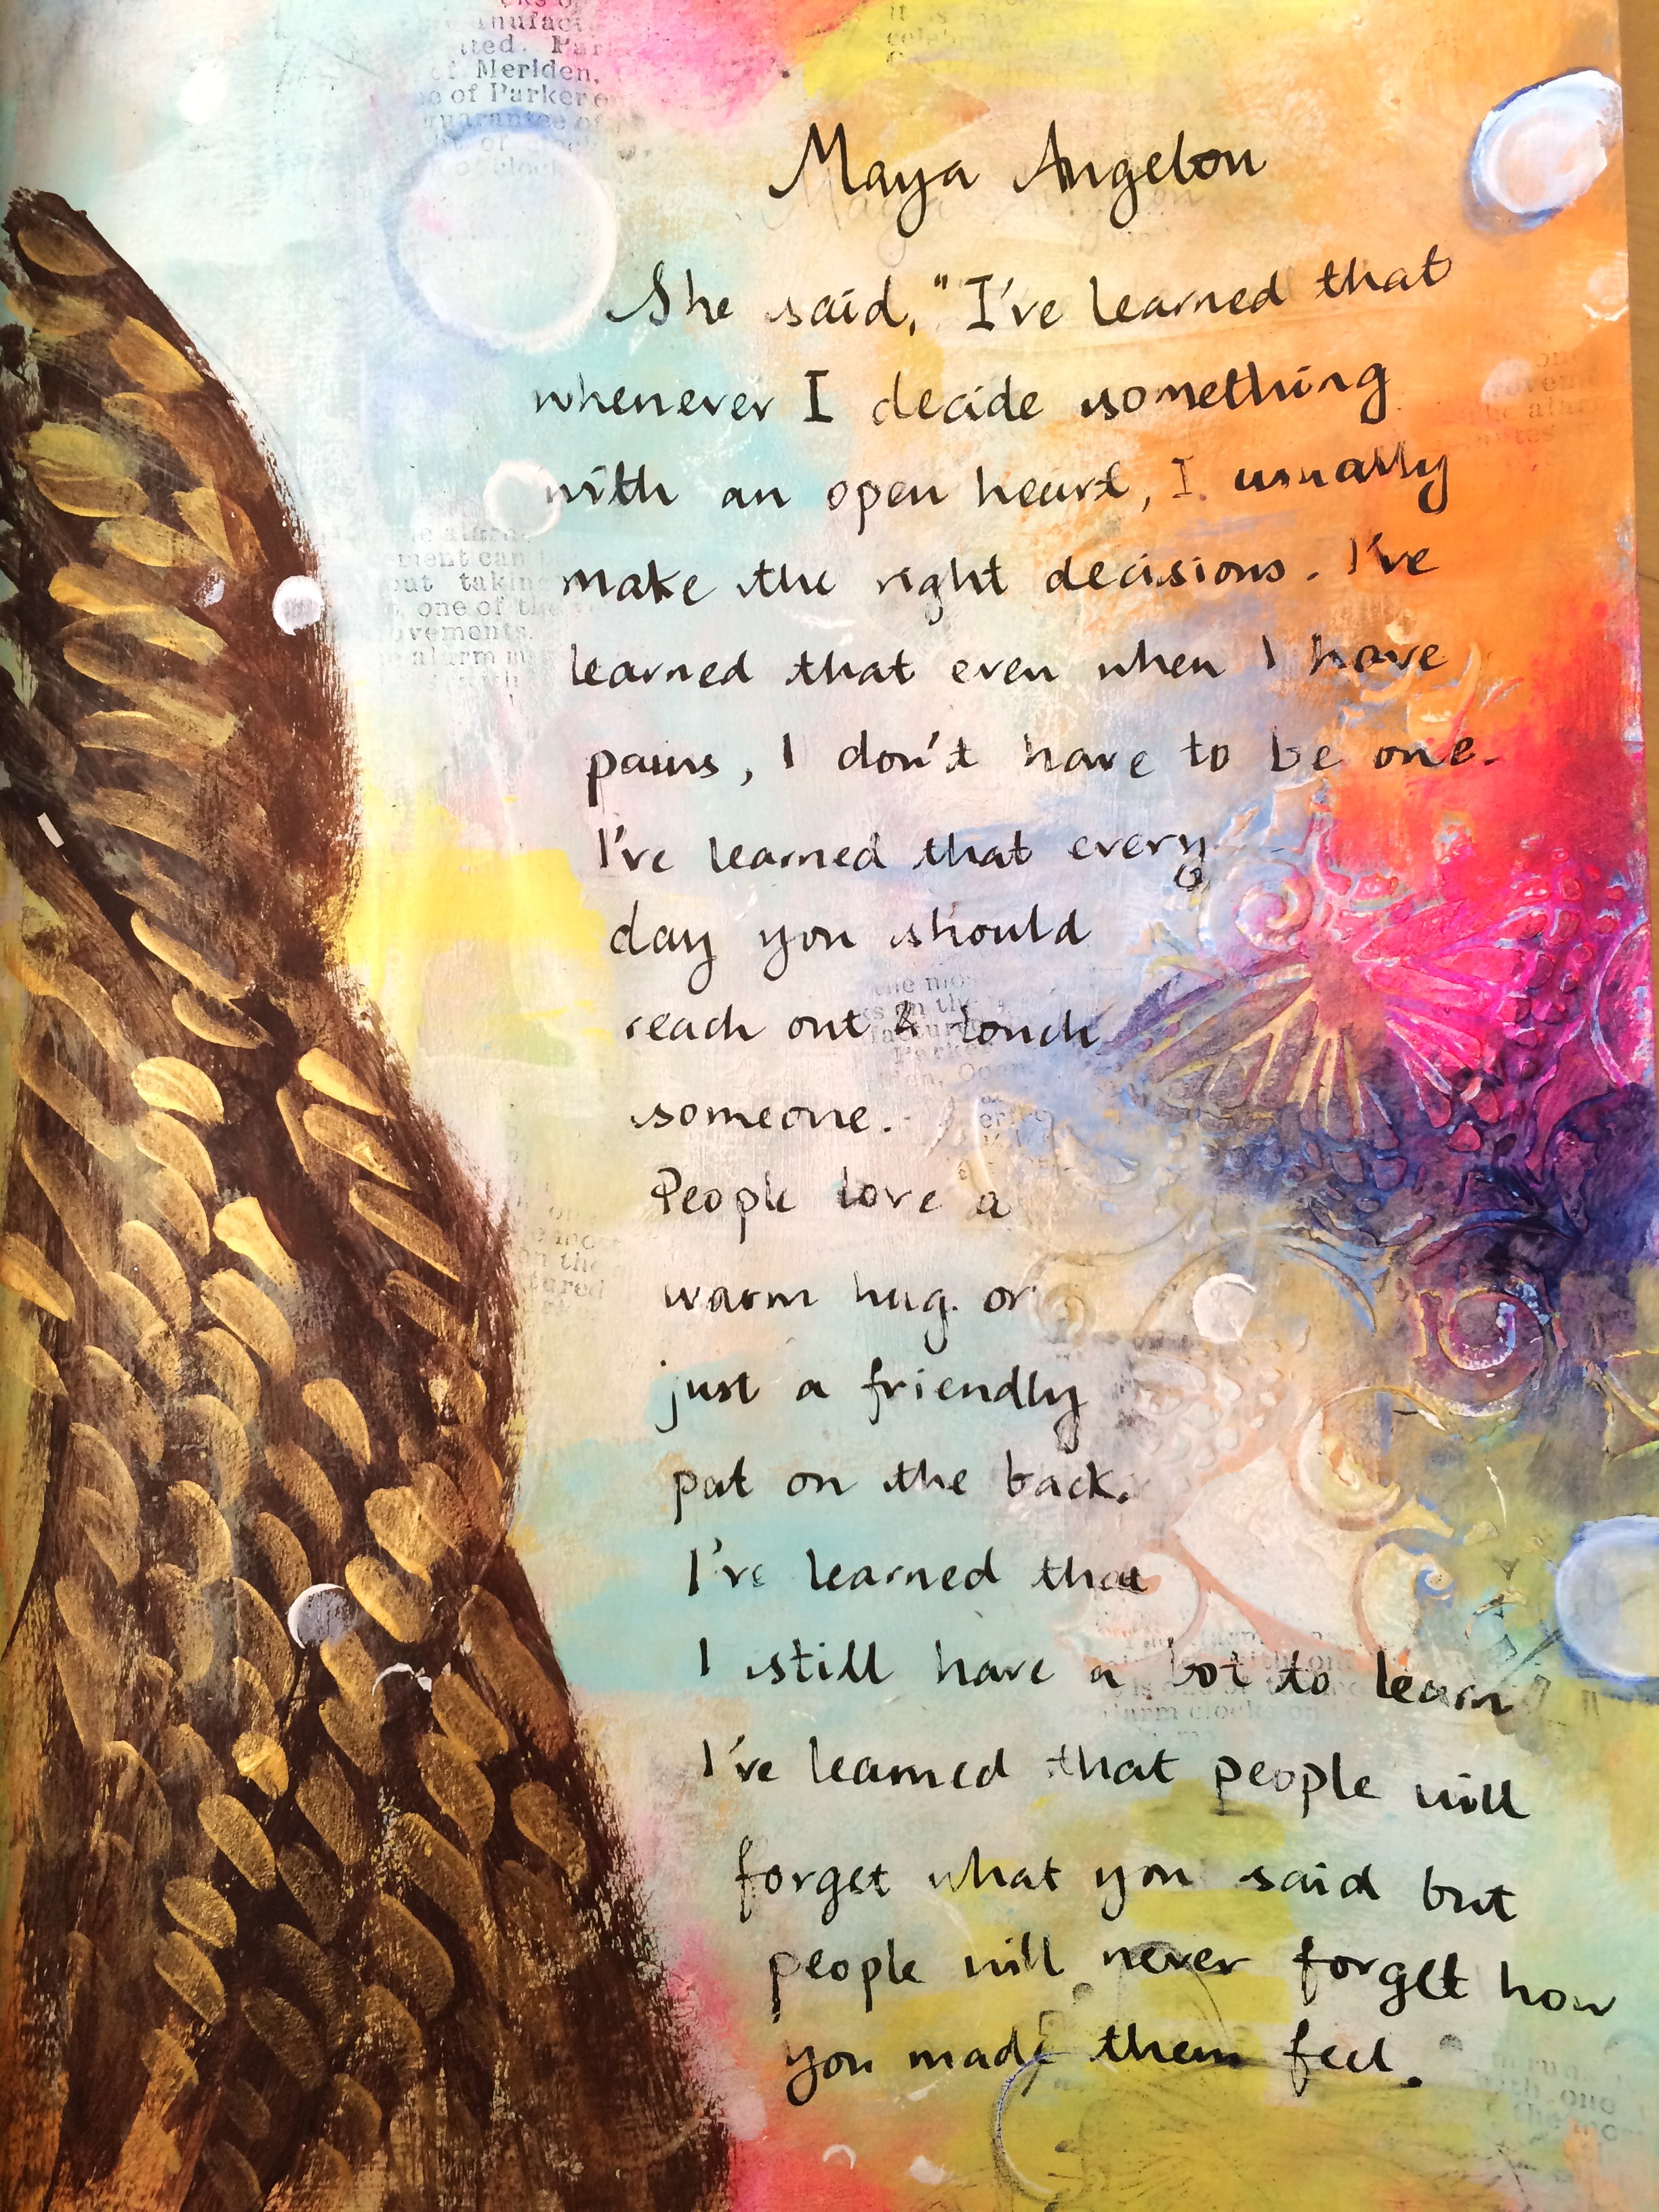 cks of
anufact
ted. Park
of Meriden,
e of Parker
guarantee of
o'clock
it is
celeb
Maya Angelou
She said, "I've learned that
whenever I decide something
with an open heart, I usually
make the right decisions. I've
learned that even when I have
pains, I don't have to be one.
I've learned that every
day you should
reach out & touch
someone.
People love a
warm hug. or
just a friendly
pat on the back.
I've learned that
I still have a lot to learn
I've learned that people will
forget what you said but
people will never forget how
you made them feel.
e alarm
ement can
out takin
one of th
ovements.
alarm m
the mo
on the
Parke
tured
alarm clocks on
with one
the mo